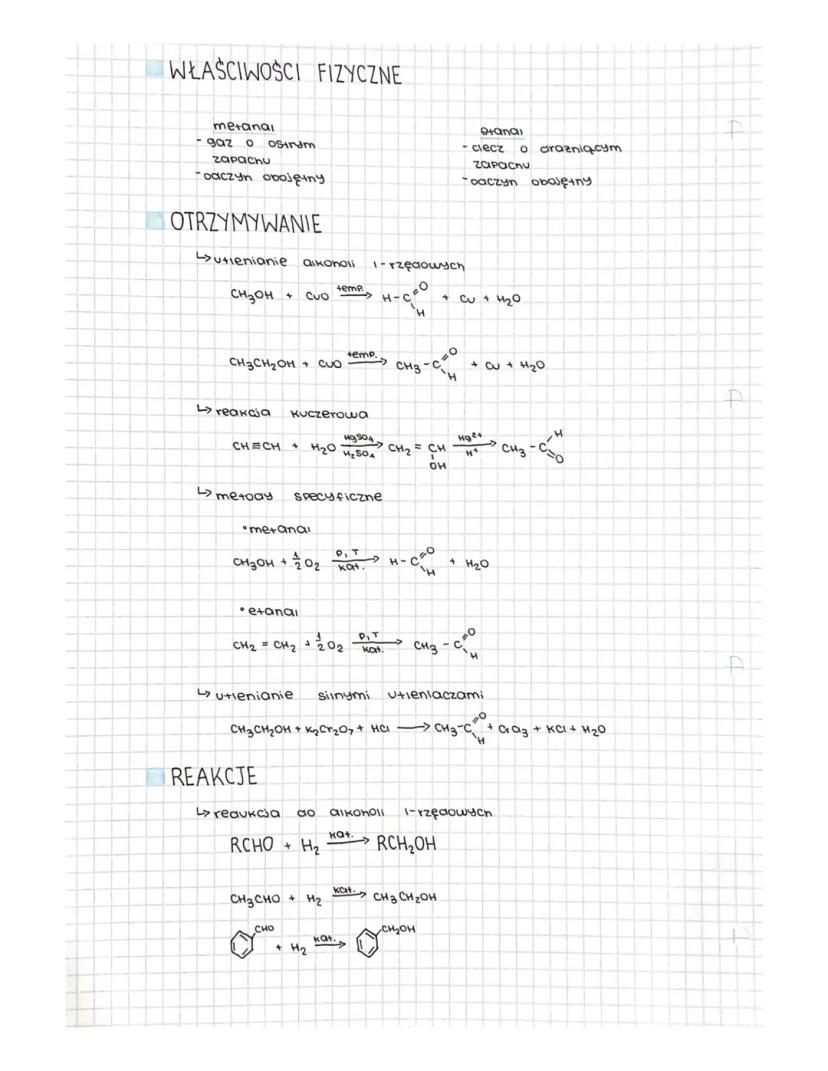 WŁAŚCIWOŚCI FIZYCZNE
metanal
- gaz o ostrym
zapachu
- odczyn obojętny
etanal
- ciecz o drażniącym
zapachu
- odczyn obojętny
OTRZYMYWANIE
↳ utlenianie alkoholi 1-rzędowych
CH₃OH + CuO temp. → H-C=O H + Cu + H₂O
CH₃CH₂OH + CuO temp. → CH₃-C=O H + Cu + H₂O
↳ reakcja kuczerowa
CH≡CH + H₂O HgSO₄ H₂SO₄ → CH₂ = CH OH Hg²⁺ H⁺ → CH₃-C H =O
↳ metody specyficzne
• metanal
CH₃OH + 1/2 O₂ p, T kat. → H-C=O H + H₂O
• etanal
CH₂ = CH₂ + 1/2 O₂ p, T kat. → CH₃-C=O H
↳ utlenianie silnymi utleniaczami
CH₃CH₂OH + K₂Cr₂O₇ + HCl → CH₃-C=O H + CrCl₃ + KCl + H₂O
REAKCJE
↳ redukcja do alkoholi 1-rzędowych
RCHO + H₂ kat. → RCH₂OH
CH₃CHO + H₂ kat. → CH₃CH₂OH
CHO + H₂ kat. → CH₂OH